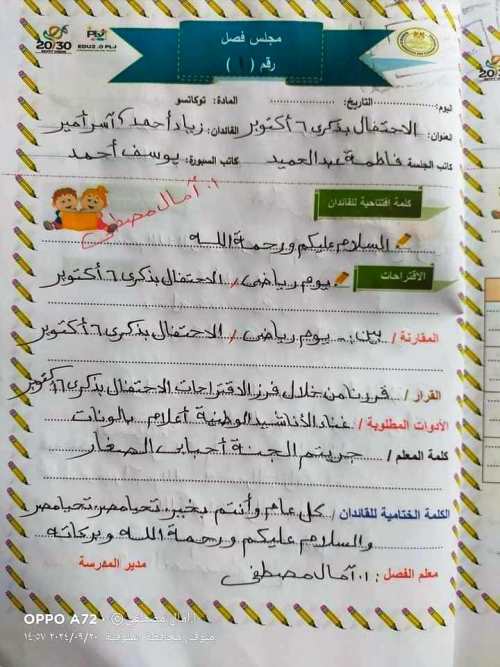 20/30
PLJ
EDU2.0 PLJ
20
مجلس فصل
رقم ( ١ )
اليوم: التاريخ: المادة: توكاتسو
العنوان: الاحتفال بذكرى ٦ أكتوبر القائدان: زياد أحمد، آسر أمير
كاتب الجلسة فاطمة عبد الحميد كاتب السبورة: يوسف أحمد
أ. آمال مصطفى
كلمة افتتاحية للقائدان
السلام عليكم ورحمة الله
الاقتراحات
يوم رياضى / الاحتفال بذكرى ٦ أكتوبر
المقارنة / بين :- يوم رياضى / الاحتفال بذكرى ٦ أكتوبر
القرار / قررنا من خلال فرز الاقتراحات الاحتفال بذكرى ٦ أكتوبر
الأدوات المطلوبة / غناء الأناشيد الوطنية أعلام بالونات
كلمة المعلم / جزيتم الجنة أحبابى الصغار
الكلمة الختامية للقائدان / كل عام وأنتم بخير، تحيا مصر، تحيا مصر
والسلام عليكم ورحمة الله وبركاته
معلم الفصل : أ. آمال مصطفى مدير المدرسة
OPPO A72 ©أ.آمال مصطفى
منوف، محافظة المنوفية ٢٠٢٤/٠٩/٢٠ ١٤:٥٧